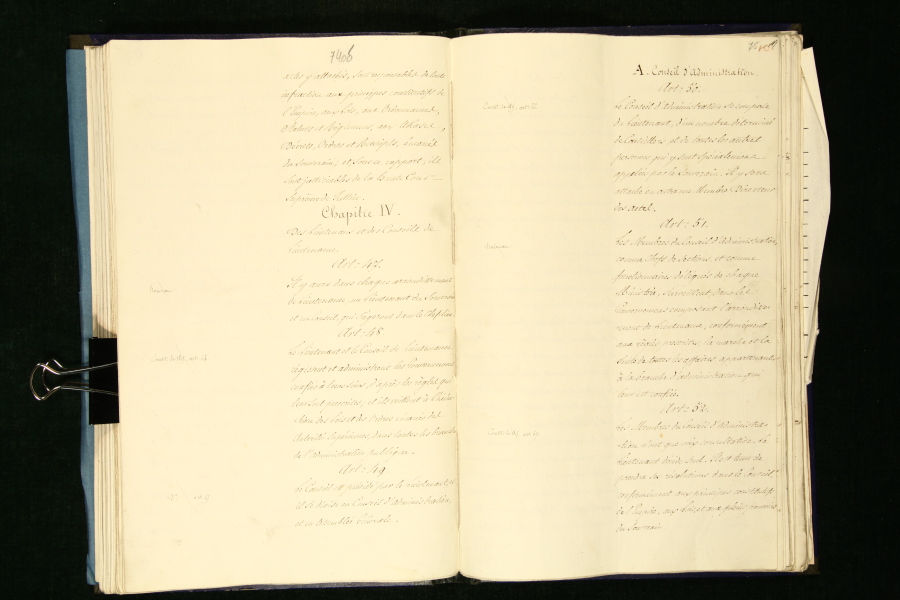 7406
actes y attachés, sont responsables de toute
infraction aux principes constitutifs de
l'Empire, aux Lois, aux Ordonnances,
Statuts et Règlements, aux Ukases,
Décrets, Ordres et Rescripts, émanés
du Souverain; et sous ce rapport, ils
sont justiciables de la Haute Cour
Suprême de Justice.
Chapitre IV.
Des Lieutenans et des Conseils de
Lieutenance.
Art: 47.
Il y aura dans chaque arrondissement
de Lieutenance un Lieutenant du Souverain
et un conseil, qui siégeront dans le Chef-lieu.
Art: 48
Le Lieutenant et le Conseil de Lieutenance
régissent et administrent les Gouvernemens
confiés à leurs soins, d'après les règles qui
leur sont prescrites; et ils veillent à l'exécu-
tion des Lois et des Ordres émanés des
Autorités Supérieures dans toutes les branches
de l'Administration publique.
Art: 49
Le Conseil est présidé par le Lieutenant
et se divise en Conseil d'Administration,
et en Assemblée Générale.
A. Conseil d'Administration.
Art: 50.
Le Conseil d'Administration se compose
du Lieutenant, d'un nombre déterminé
de Conseillers et de toutes les autres
personnes qui y sont spécialement
appelées par le Souverain. Il y sera
attaché en outre un Membre Directeur
Art: 51.
Les Membres du Conseil d'Administration,
comme Chefs de Sections, et comme
fonctionnaires délégués de chaque
Ministère, surveillent dans les
Gouvernemens composant l'arrondisse-
ment de Lieutenance, conformément
aux règles prescrites, la marche et la
suite de toutes les affaires appartenant
à la branche d'administration qui
leur est confiée.
Art: 52.
Les Membres du Conseil d'Administra-
tion n'ont que voix consultative. Le
Lieutenant décide seul. Il est tenu de
prendre ses résolutions dans le Conseil,
conformément aux principes constitutifs
de l'Empire, aux Lois et aux pleins pouvoirs
du Souverain.